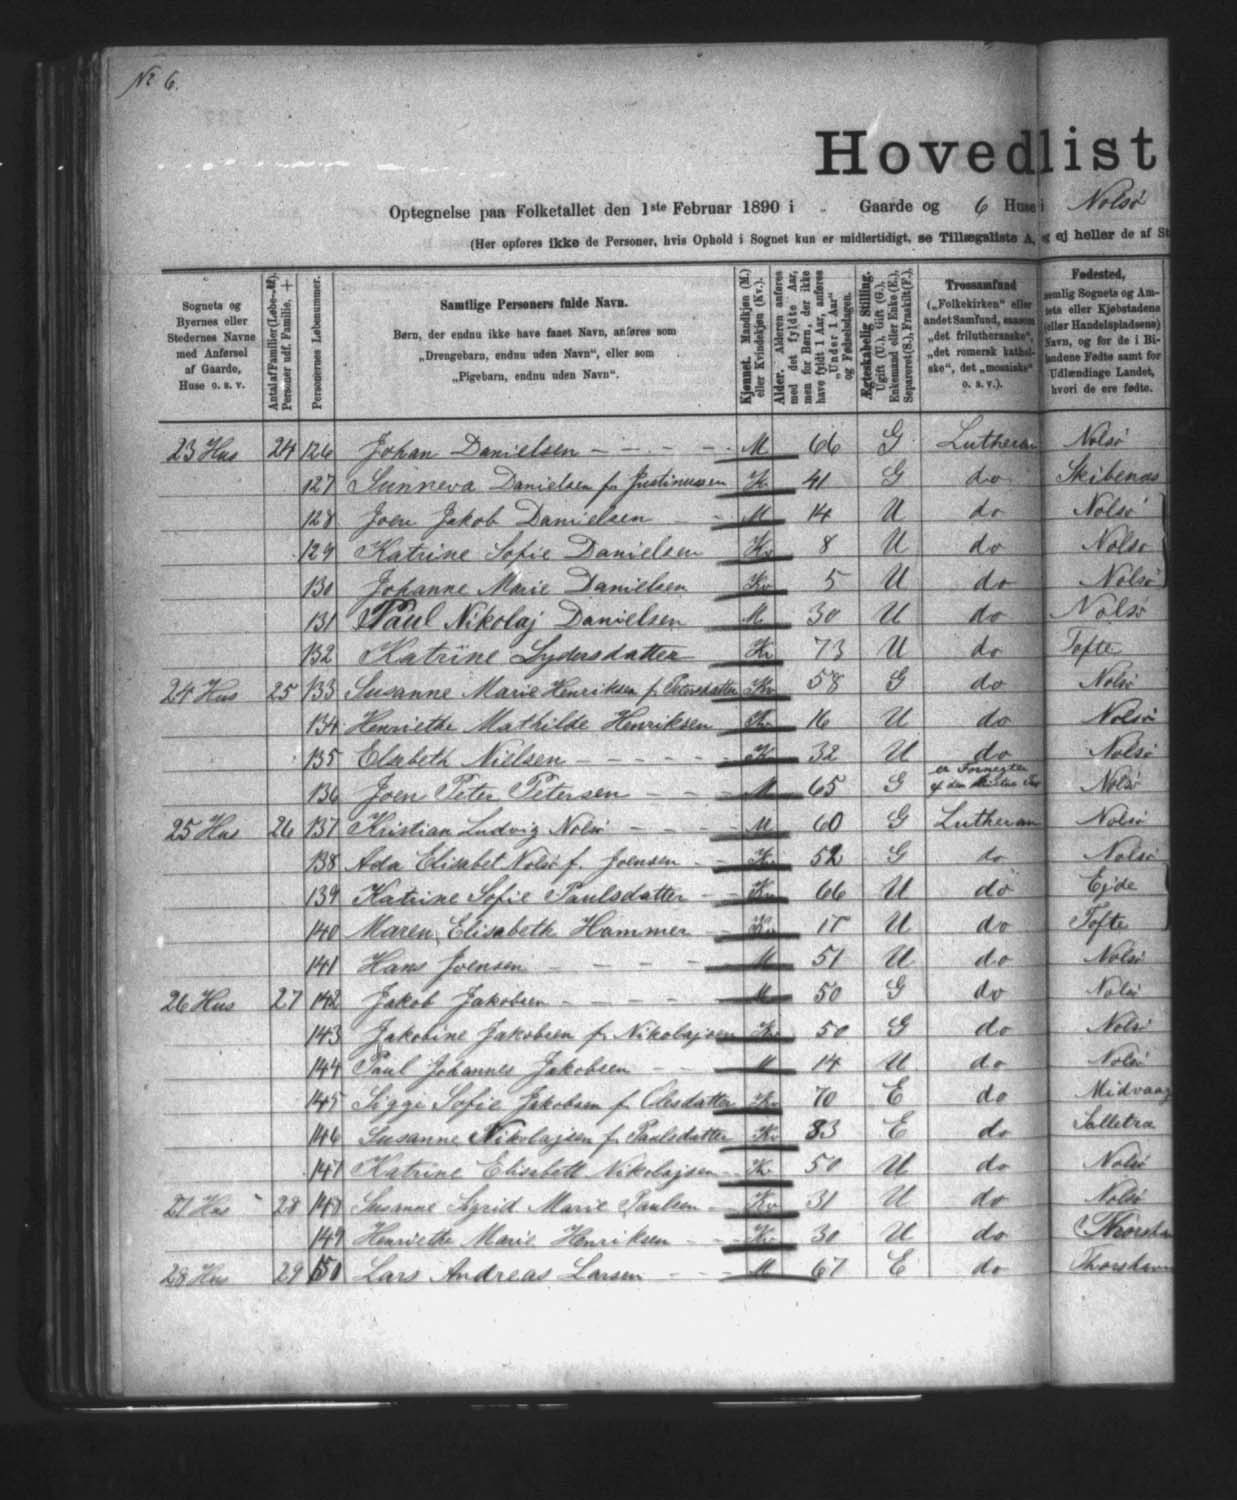 № 6.
Hovedlist
Optegnelse paa Folketallet den 1ste Februar 1890 i „ Gaarde og 6 Huse i Nolsø
(Her opføres ikke de Personer, hvis Ophold i Sognet kun er midlertidigt, se Tillægsliste A, og ej heller de af St
Sognets og Byernes eller Stedernes Navne med Anførsel af Gaarde, Huse o. s. v.
Antal af Familier (Løbe-№). Personer udf. Familie, +
Personernes Løbenummer.
Samtlige Personers fulde Navn.
Børn, der endnu ikke have faaet Navn, anføres som
„Drengebarn, endnu uden Navn", eller som
„Pigebarn, endnu uden Navn".
Kjønnet. Mandkjøn (M.) eller Kvindekjøn (Kv.).
Alder. Alderen anføres med det fyldte Aar, men for Børn, der ikke have fyldt 1 Aar, anføres „Under 1 Aar" og Fødselsdagen.
Ægteskabelig Stilling. Ugift (U.), Gift (G.), Enkemand eller Enke (E.), Separeret (S.), Fraskilt (F.).
Trossamfund („Folkekirken" eller andet Samfund, saasom „det frilutheranske", „det romersk katholske", det „mosaiske" o. s. v.).
Fødested, nemlig Sognets og Amtets eller Kjøbstadens (eller Handelspladsens) Navn, og for de i Bilandene Fødte samt for Udlændinge Landet, hvori de ere fødte.
23 Hus 24 126 Johan Danielsen M 66 G Lutheran Nolsø
127 Sunneva Danielsen f. Justinussen K 41 G do Skibenæs
128 Joen Jakob Danielsen M 14 U do Nolsø
129 Katrine Sofie Danielsen Kv 8 U do Nolsø
130 Johanne Marie Danielsen Kv 5 U do Nolsø
131 Paul Nikolaj Danielsen M 30 U do Nolsø
132 Katrine Lydersdatter Kv 73 U do Tofte
24 Hus 25 133 Susanne Marie Henriksen f. Petersdatter Kv 58 G do Nolsø
134 Henriethe Mathilde Henriksen Kv 16 U do Nolsø
135 Elsebeth Nielsen K 32 U do Nolsø
136 Joen Peter Petersen M 65 G er Fornegter af den Nolsø
25 Hus 26 137 Kristian Ludvig Nolsø M 60 G Lutheran Nolsø
138 Ada Elisabet Nolsø f. Joensen K 52 G do Nolsø
139 Katrine Sofie Paulsdatter Kv 66 U do Ejde
140 Maren Elisabeth Hammer Kv U do Tofte
141 Hans Joensen M 51 U do Nolsø
26 Hus 27 142 Jakob Jakobsen M 50 G do Nolsø
143 Jakobine Jakobsen f. Nikolajsen Kv 50 G do Nolsø
144 Paul Johannes Jakobsen M 14 U do Nolsø
145 Sigga Sofie Jakobsen f. Olesdatter Kv 70 E do Midvaag
146 Susanne Nikolajsen f. Paulsdatter Kv 83 E do Selletræ
147 Katrine Elisabeth Nikolajsen Kv 50 U do Nolsø
27 Hus 28 148 Susanne Sigrid Marie Paulsen Kv 31 U do Nolsø
149 Henriethe Marie Henriksen Kv 30 U do Thorshavn
28 Hus 29 150 Lars Andreas Larsen M 67 E do Thorshavn